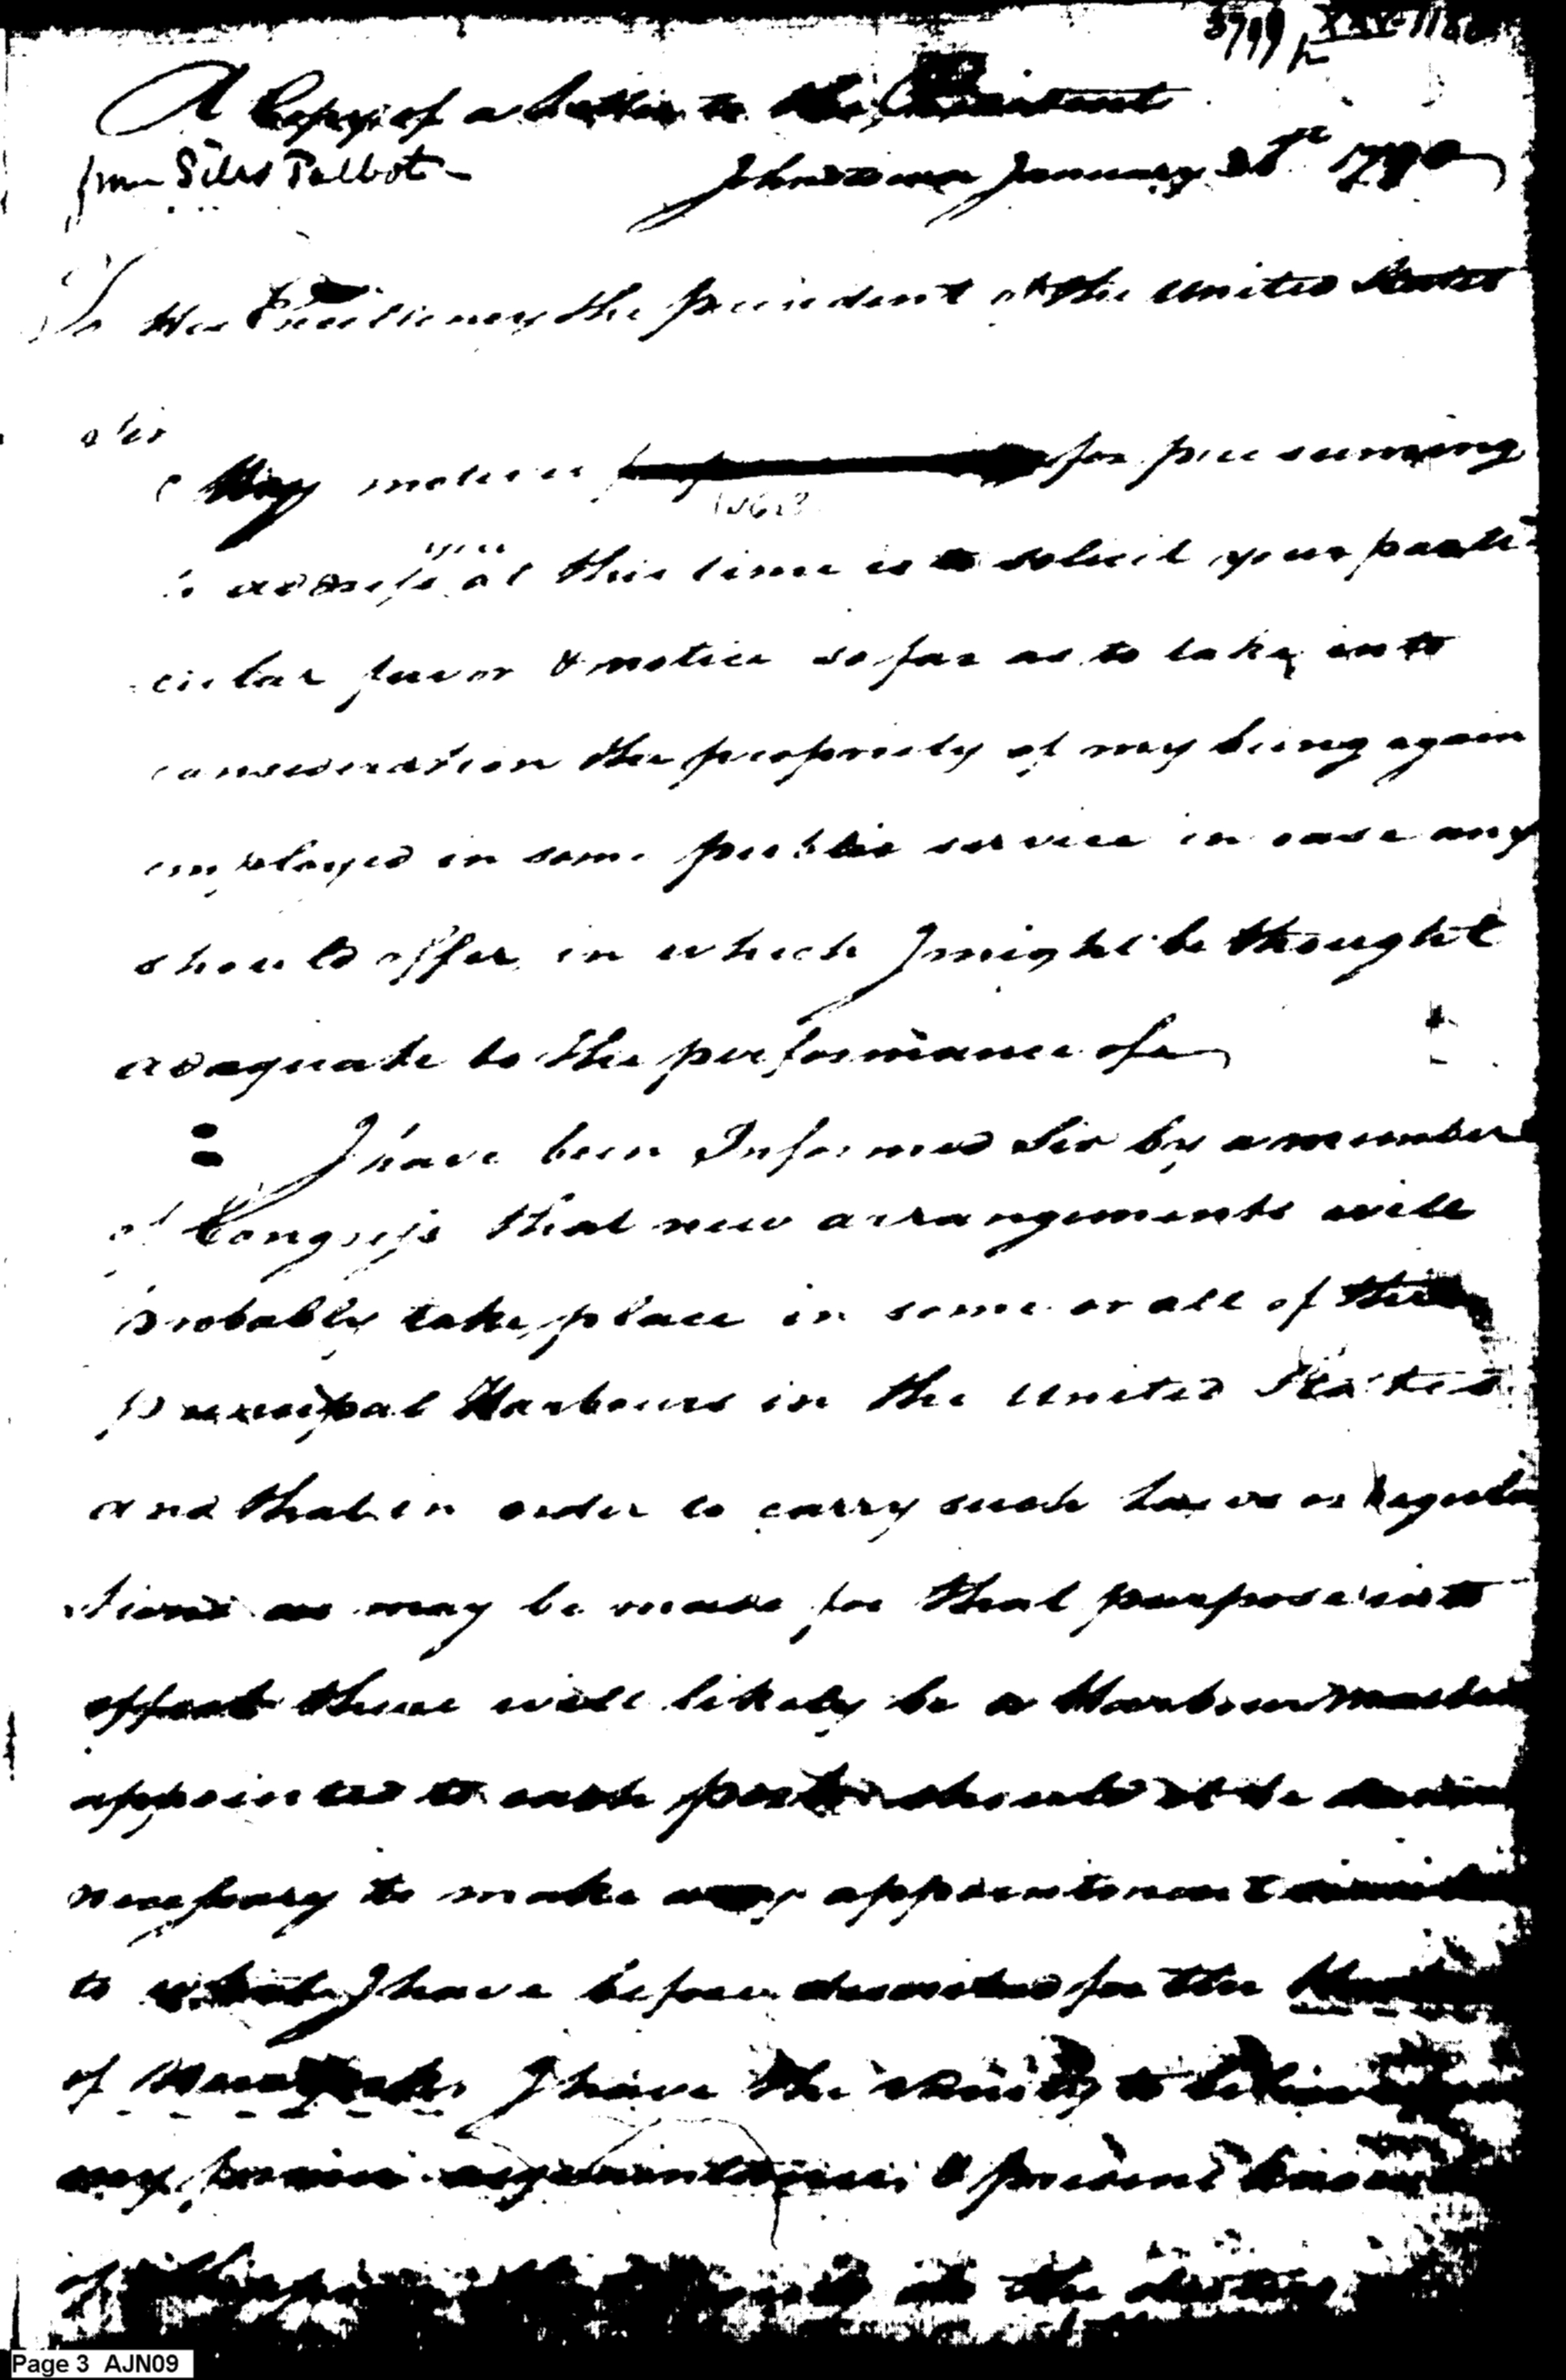 A Copy of a Letter to the President
from Silas Talbot
Johnstown January 1790
To His Excellency the president of the United States
Sir
My motives for presuming
to address you at this time is to solicit your parti-
cular favor & notice so far as to take into
consideration the propriety of my being again
employed in some public service in case any
should offer in which I might be thought
adaquate to the performance of
I have been Informed Sir by a member
of Congress that new arrangements will
probably take place in some or all of the
principal Harbours in the United States
and that in order to carry such Laws or Regula
tions as may be made for that purpose into
effect there will likely be a Harbour Master
appointed to each port should it be
necessary to make any appointment
to what I have before for the
of I have the vanity to
my & present
of the at the
Page 3 AJN09